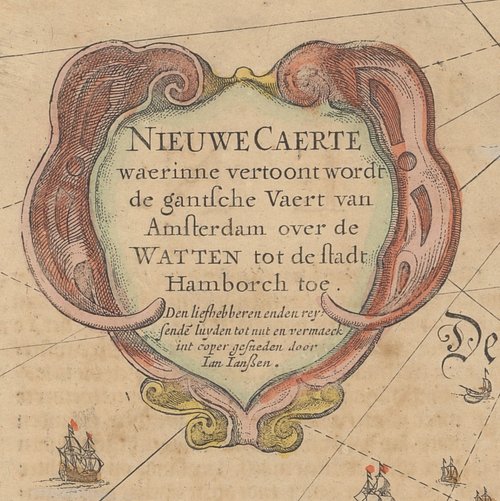 NIEUWE CAERTE
waerinne vertoont wordt
de gantſche Vaert van
Amſterdam over de
WATTEN tot de ſtadt
Hamborch toe.
Den liefhebberen ende rey⸗
ſendē luyden tot nut en vermaeck
int coper geſneden door
Ian Ianßen.
De